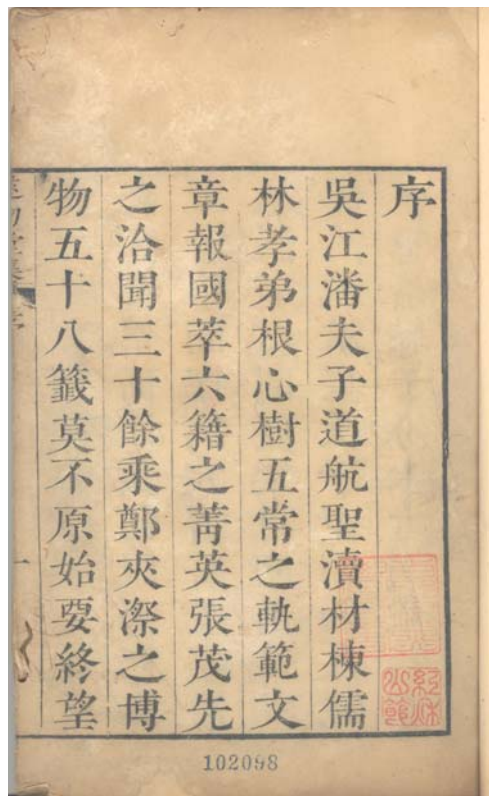 序
吳江潘夫子道航聖瀆材棟儒
林孝弟根心樹五常之軌範文
章報國萃六籍之菁英張茂先
之洽聞三十餘乘鄭夾漈之博
物五十八籖莫不原始要終望
一
102098